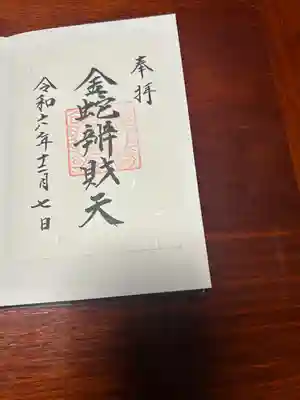 奉拝
金蛇辨財天
令和六年十二月七日